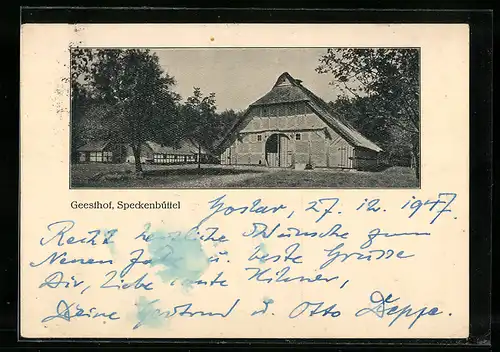 Geesthof, Speckenbüttel
Goslar, 27. 12. 1947
Recht herzliche Wünsche zum
Neuen Jahr u. beste Grüsse
Dir, liebe Tante Hilmer,
Deine Gertrud u. Otto Deppe.